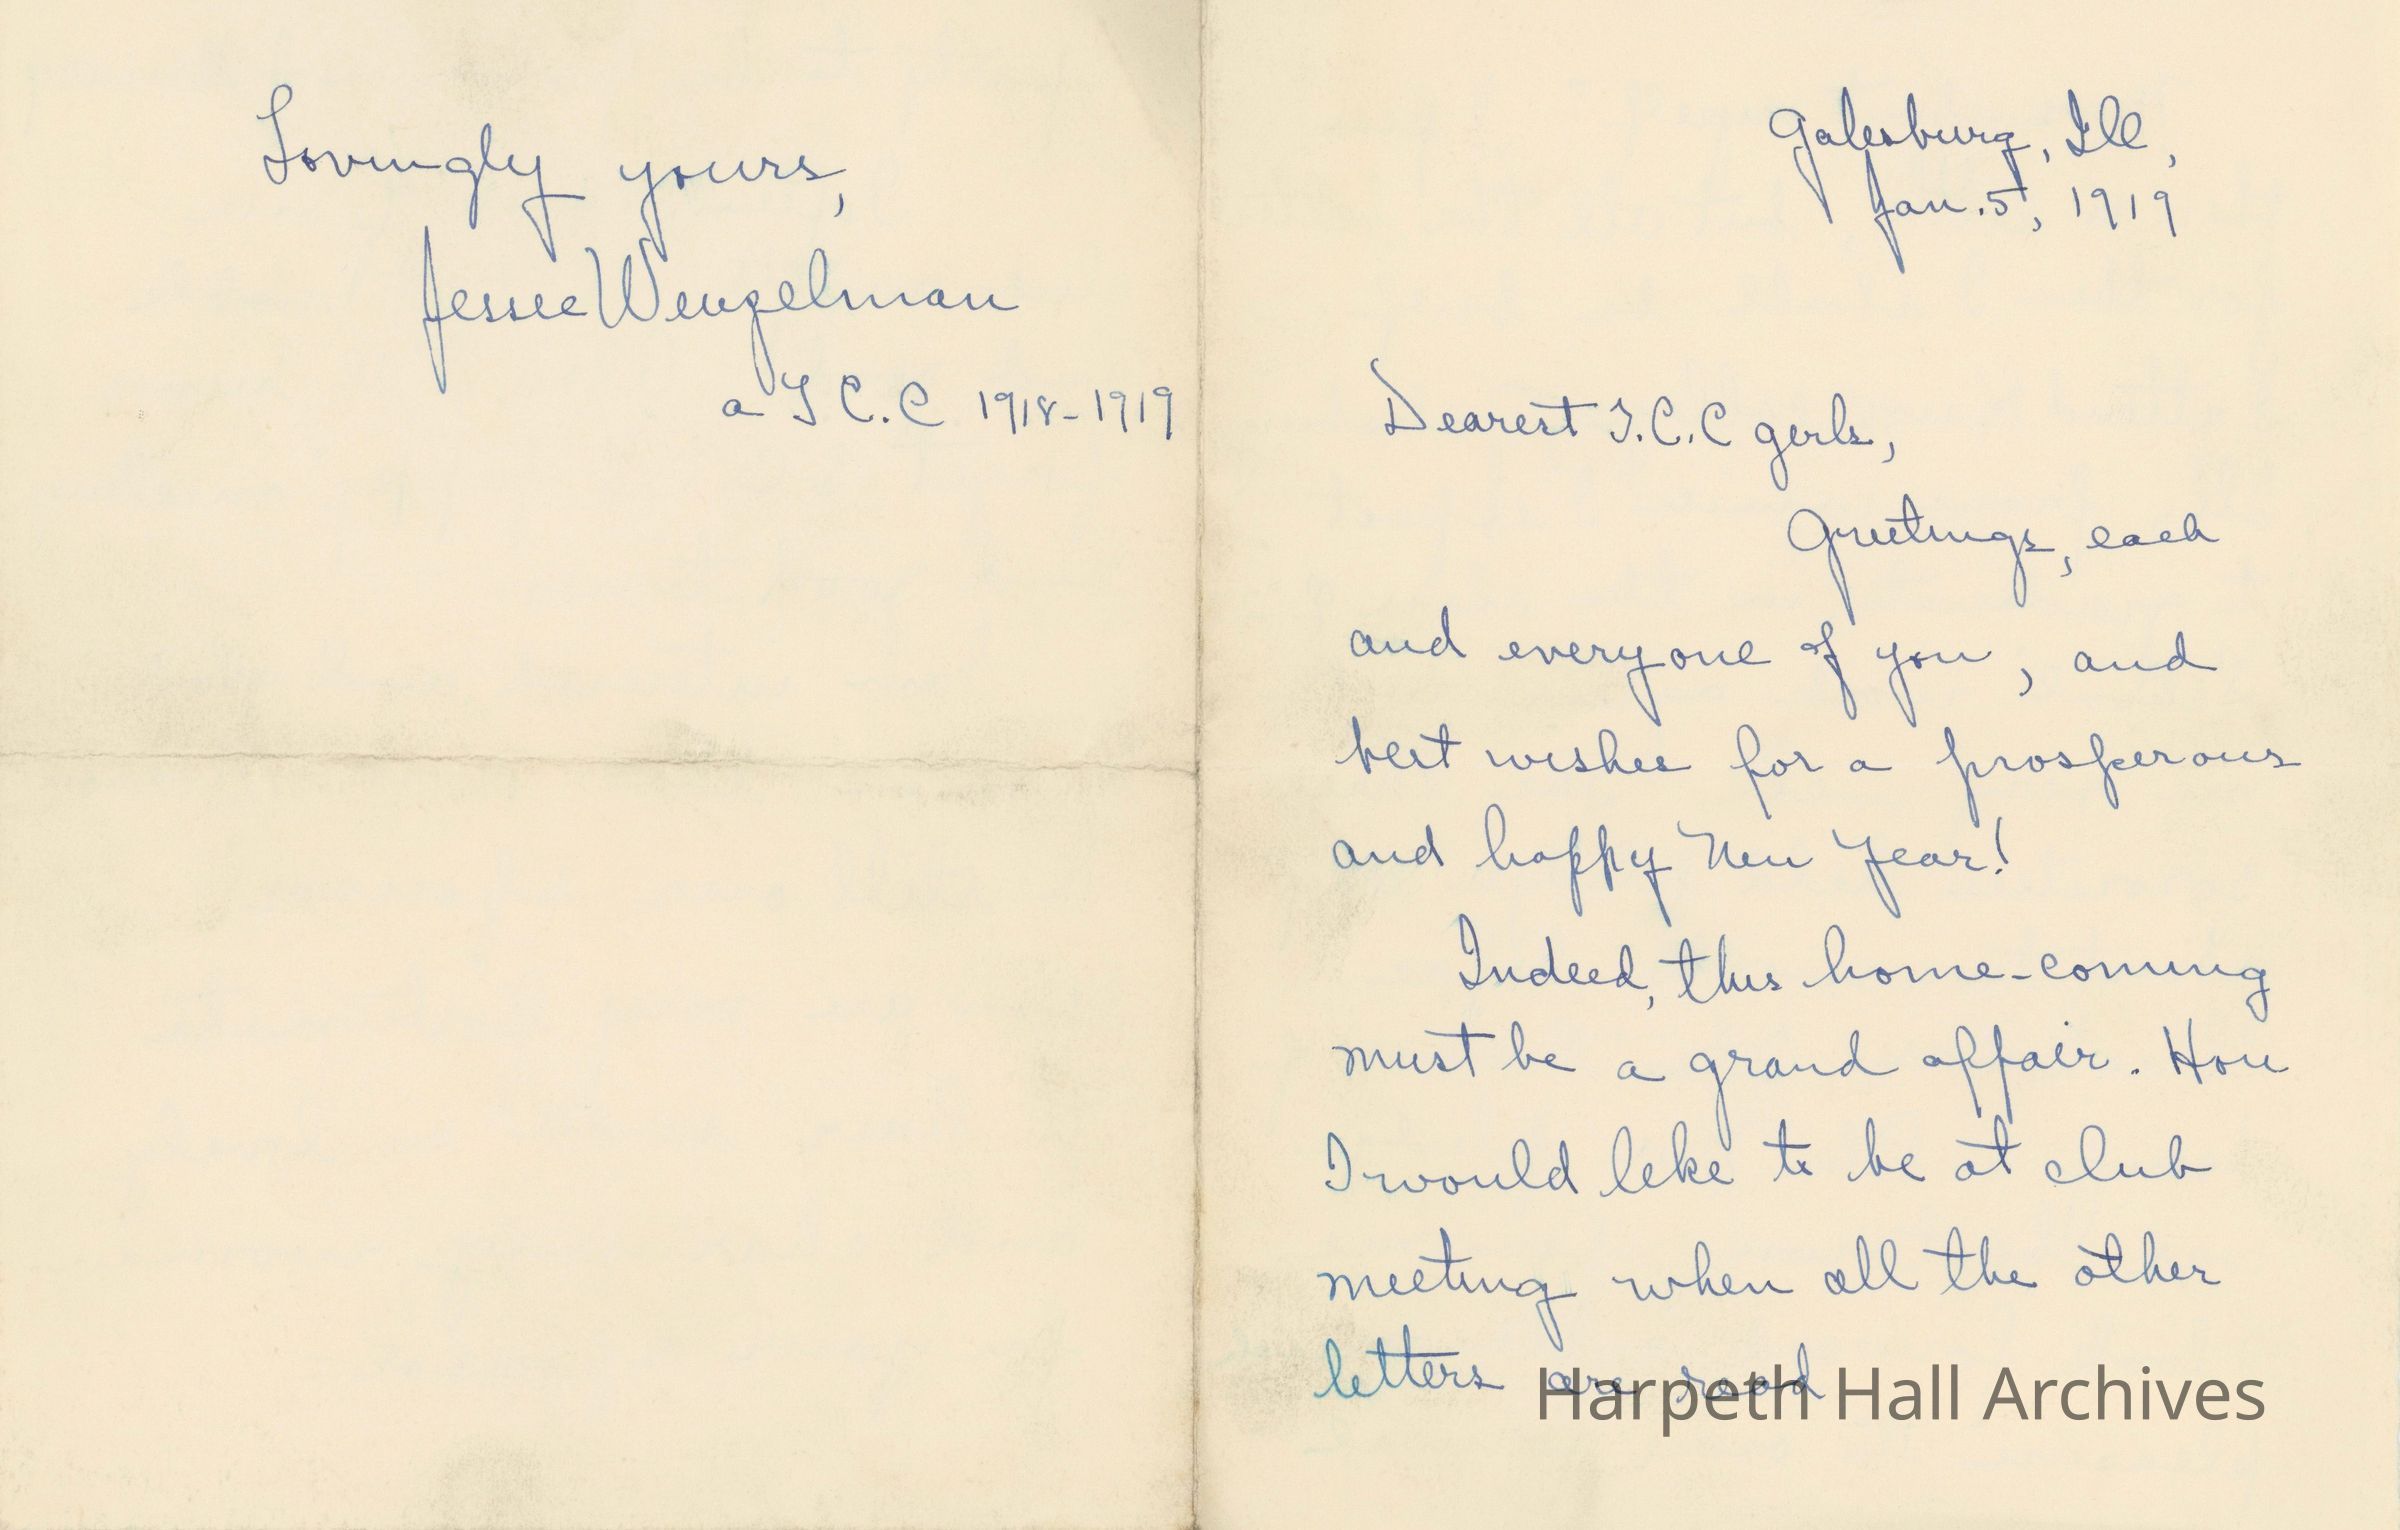 Galesburg, Ill,
Jan. 5, 1919
Dearest T.C.C girls,
Greetings, each
and everyone of you, and
best wishes for a prosperous
and happy New Year!
Indeed, this home-coming
must be a grand affair. How
I would like to be at club
meeting when all the other
letters are read
Lovingly yours,
Jessie Wenzelman
a T C.C 1918-1919
Harpeth Hall Archives